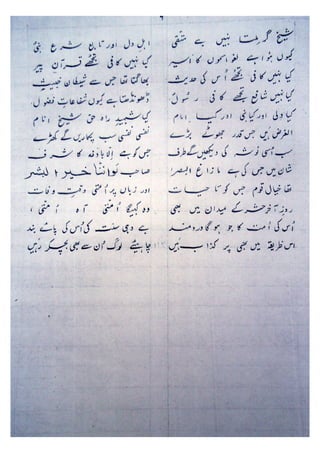 ٦
شیخ گر ملتا نہیں ہے متقی اہل دل اور تابع شرع نبیؐ
کیوں ہوا ہے لغو اسموں کا اسیر کیا نہیں کافی تجھے قرآن پیر
کیا نہیں کافی تجھے اُس کی حدیث بھاگتا تھا جس سے شیطان خبیث
کیا نہیں شافع تجھے کافی رسولؐ ڈھونڈھتا ہے کیوں شفاعات فضول
کیا ولی اور کیا نبی اور کیا امام کیا شہید راہ حق شیخ انام
الغرض ہیں جس قدر چھوٹے بڑے نفسی نفسی سب پکاریں گے کھڑے
سب اُسی نوشہ کی دیکھیں گے طرف جس کو ہے اِلّا باذنہ کا شرف
شان میں جس کی ہے مازاغ البصر صاحب خیر البشر
تھا خیال قوم جس کو تا حیات اور زباں پر اُمتی وقت وفات
روز آخر حشر کے میدان میں بھی وہ کہیگا اُمتی آہ اُمتی
اُس کی اُمت کا جو ہوگا دردمند ہے وہی سنت کی اُس کی پائے بند
اس طریقہ میں بھی پر کذاب ہیں چاہیئے لوگ اُن سے بھی بچکر رہیں